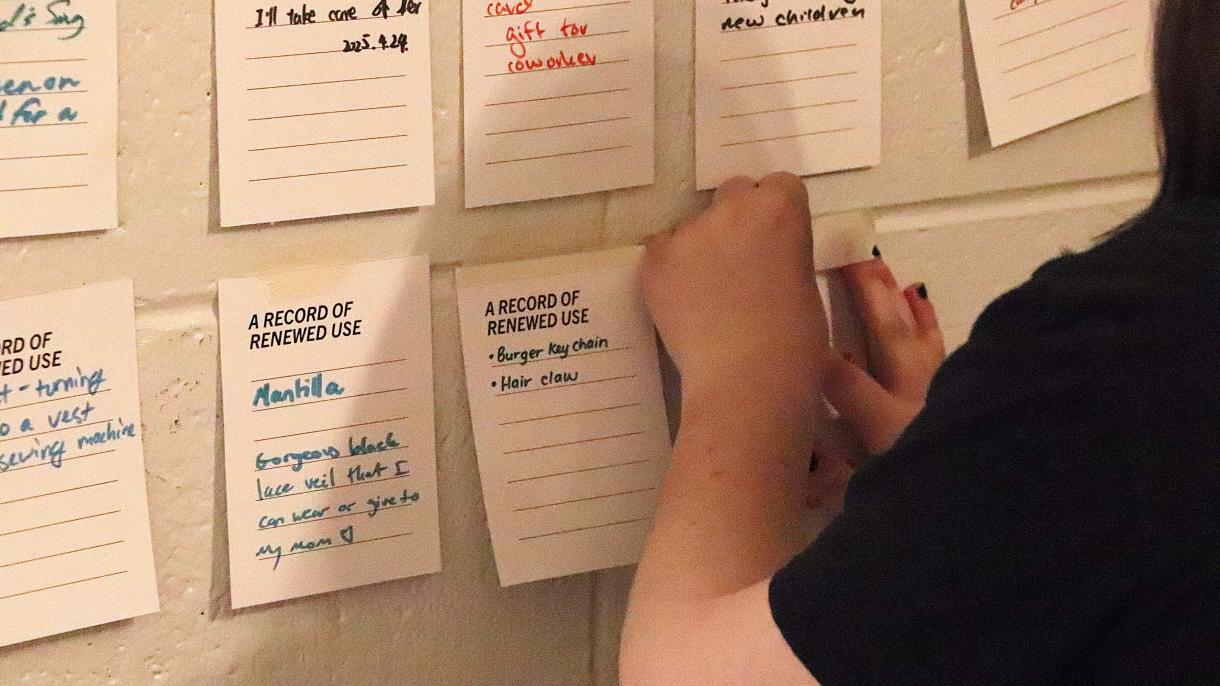 I'll take care of her
2025.4.29.
gift for
coworker
new children
for a
A RECORD OF
RENEWED USE
Mantilla
Gorgeous black
lace veil that I
can wear or give to
my mom ♡
A RECORD OF
RENEWED USE
• Burger Key chain
• Hair claw
RD OF
ED USE
- turning
a vest
sewing machine